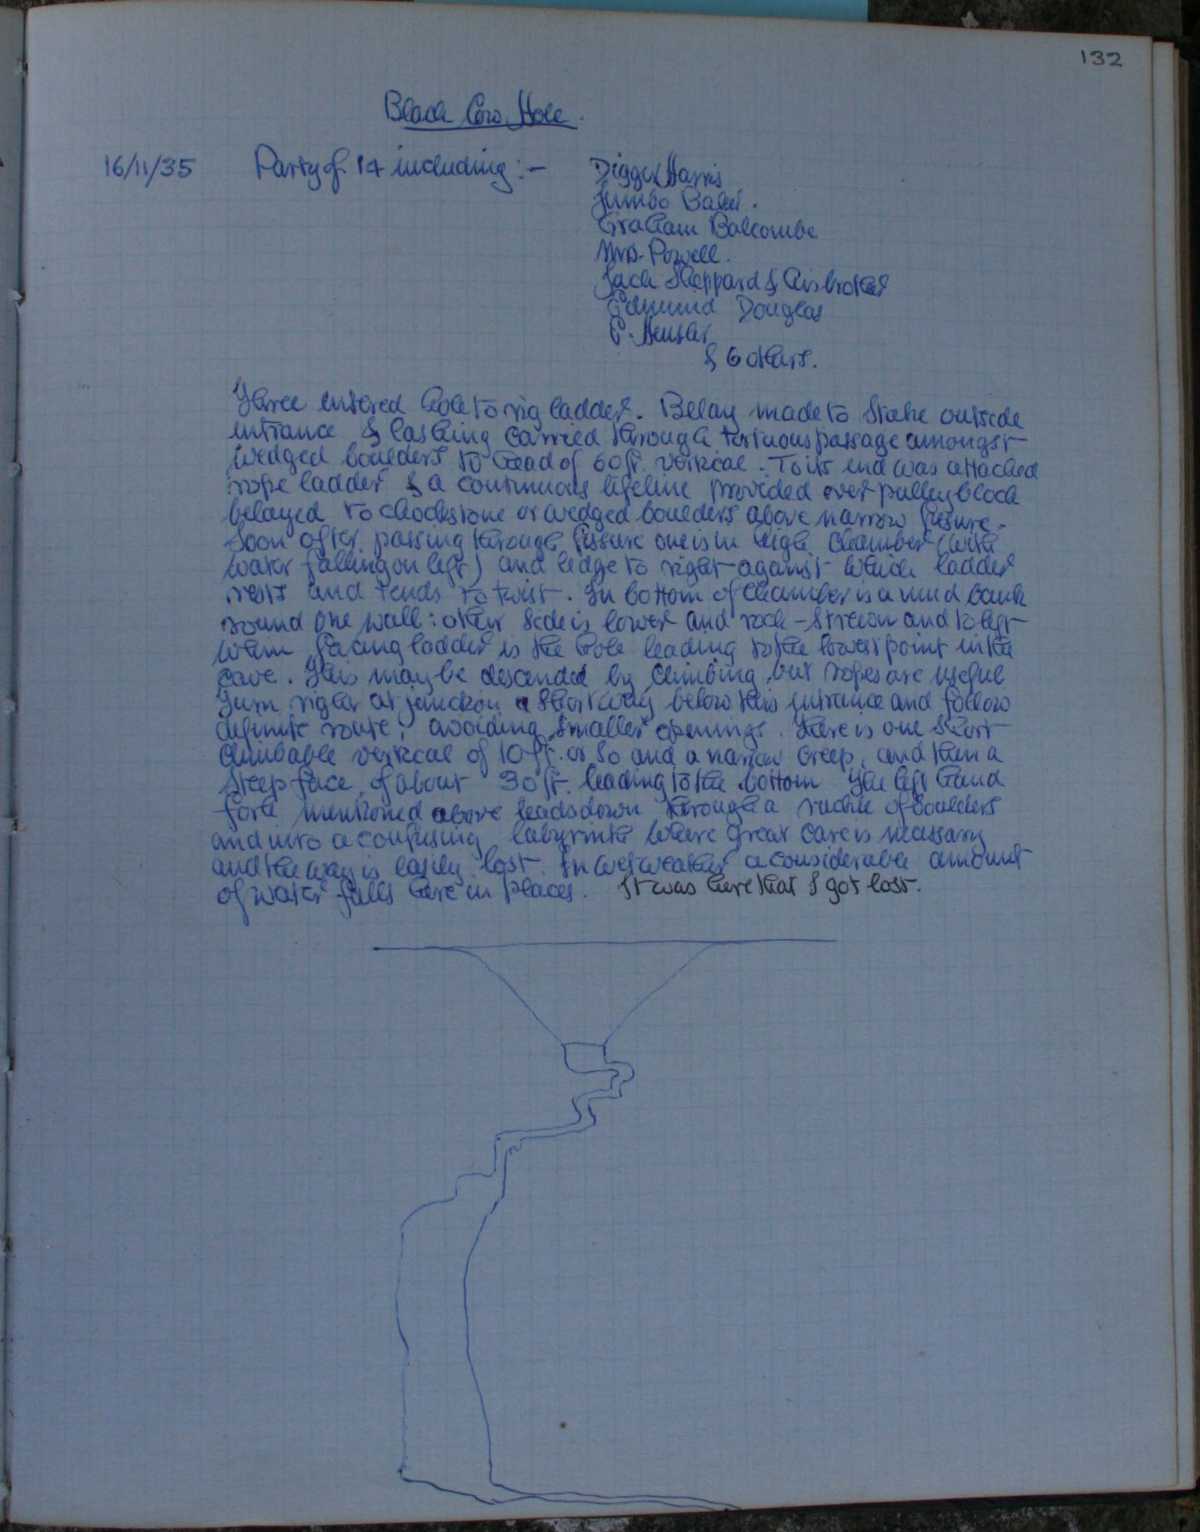 132
Black Cow Hole.
16/11/35 Party of 14 including:-
Digger Harris
Jumbo Baker.
Graham Balcombe
Mrs. Powell.
Jack Sheppard & his brother
Edmund Douglas
C.
& 6 others.
Three entered hole to rig ladder. Belay made to stake outside
entrance & lashing carried through tortuous passage amongst
wedged boulders to head of 60ft. vertical. To its end was attached
rope ladder & a continuous lifeline provided over pulley block
belayed to chockstone or wedged boulders above narrow fissure.
Soon after passing through fissure one is in high chamber (with
water falling on left) and ledge to right against which ladder
rests and tends to twist. In bottom of chamber is a mud bank
round one wall: other side is lower and rock-strewn and to left
when facing ladder is the hole leading to the lowest point in the
cave. This may be descended by climbing but ropes are useful
Turn right at junction a short way below this entrance and follow
definite route, avoiding smaller openings. There is one short
climbable vertical of 10ft. or so and a narrow creep, and then a
steep face of about 30ft. leading to the bottom The left hand
fork mentioned above leads down through a ruckle of boulders
and into a confusing labyrinth where great care is necessary
and the way is easily lost. In wet weather a considerable amount
of water falls here in places. It was here that I got lost.